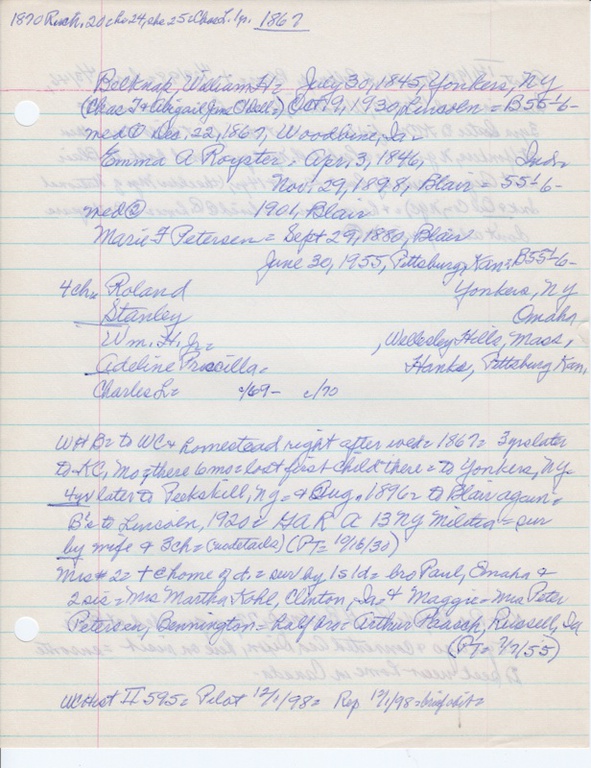 1870 Rich. 20 cho 24, she 25 = Chas L. 1 yr. 1867
Belknap, William H = July 30, 1845, Yonkers, NY
(Chas T & Abigail Jane Odell =) Oct 9, 1930, Lincoln = B 55-6-
med ① Dec, 22, 1867, Woodbine, Ia.
Emma A Royster = Apr, 3, 1846, Ind =
Nov. 29, 1898, Blair = 55-6-
med ② 1901, Blair
Marie F Petersen = Sept 29, 1880, Blair
June 30, 1955, Pittsburg, Kan = B55-6-
4 ch = Roland Yonkers, NY
Stanley Omaha
Wm. H. Jr = , Wellesley Hills, Mass,
Adeline Priscilla = Hanks, Pittsburg Kan,
Charles L = c/69- c/70
WHB = to WC & homestead right after wed = 1867 = 3 yrs later
to KC, Mo = there 6 mo = lost first child there = to Yonkers, NY =
4 yr later to Peekskill, NY = & Aug. 1896 = to Blair again =
B's to Lincoln, 1920 = GAR A 13 NY Militia = sur
by wife & 3 ch = (no details) (PT = 10/16/30)
Mrs # 2 = + c home of d. = sur by 1s 1d = bro Paul, Omaha &
2 sis = Mrs Martha Kahl, Clinton, Ia & Maggie = Mrs Peter
Petersen, Bennington = half bro = Arthur Paasch, Russell, Ia
(PT = 7/7/55)
WC Hist II 595 = Pilot 12/1/98 = Rep 12/1/98 = brief obit =